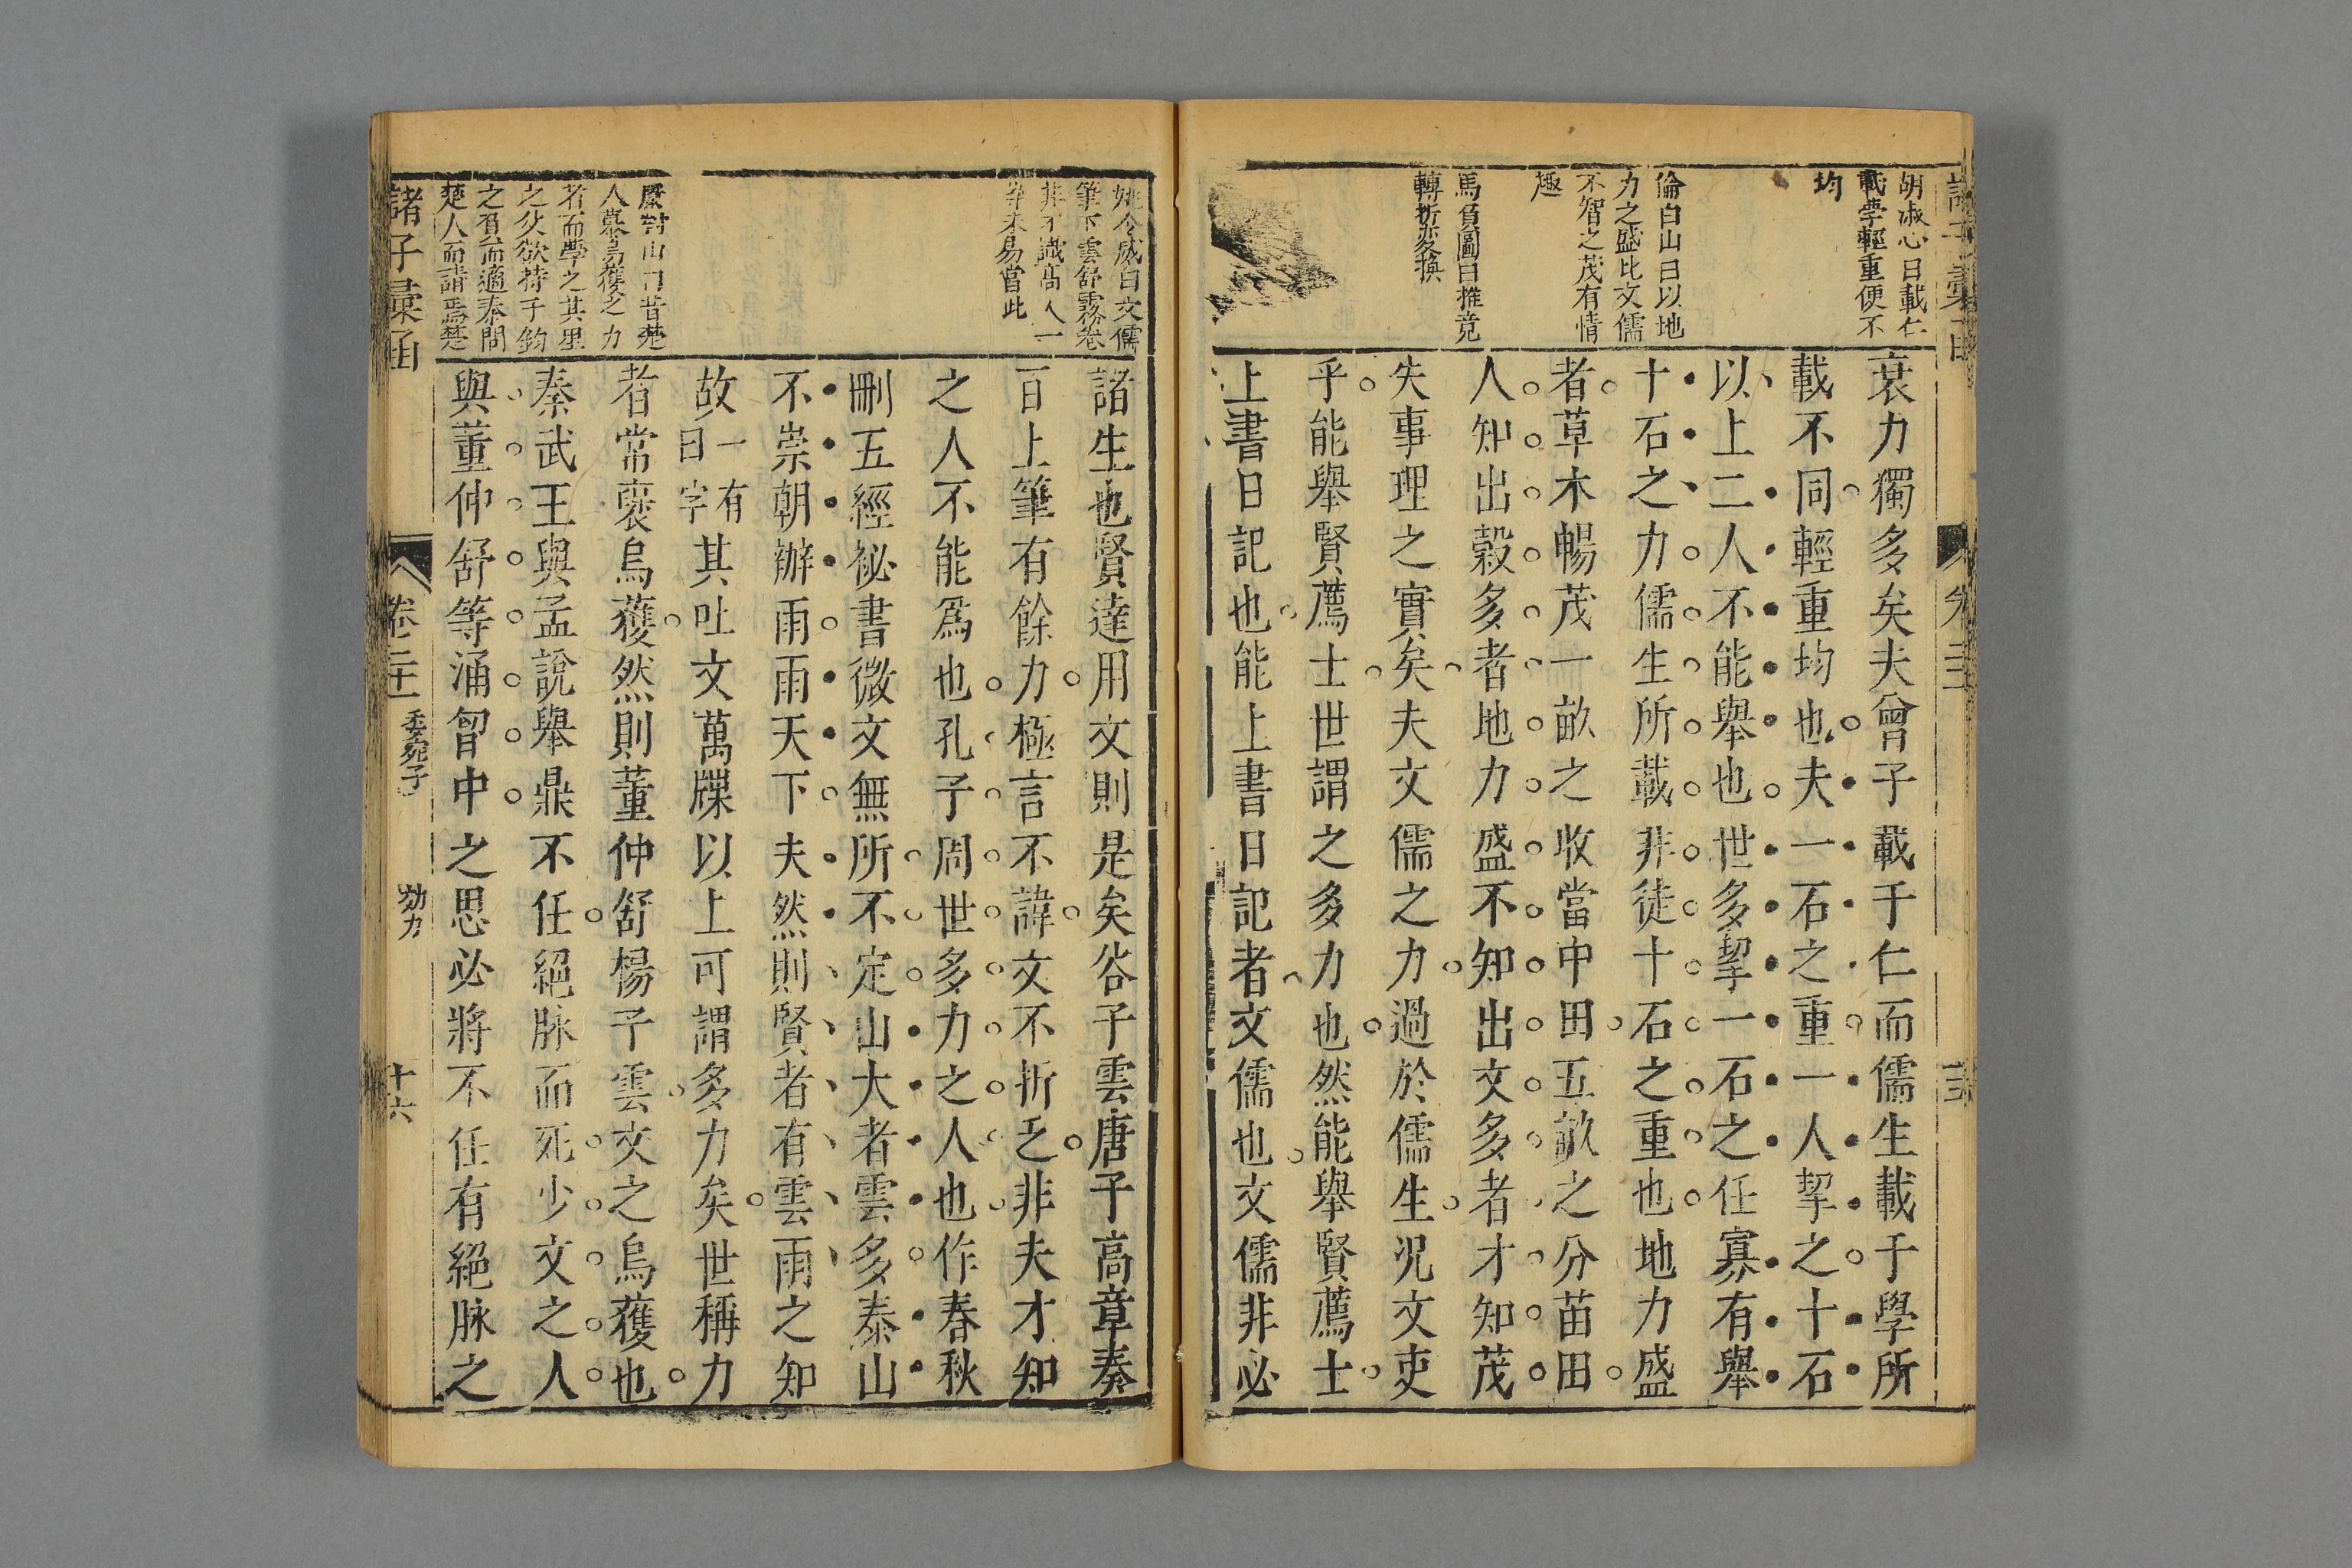 胡淑心曰載仁
載學輕重便不
均
倫白山曰以地
力之盛比文儒
不智之茂有情
趣
馬負圖曰推竟
轉折変換
衰力獨多矣夫曾子載于仁而儒生載于學所
載不同輕重均也夫一石之重一人挈之十石
以上二人不能舉也世多挈一石之任寡有舉
十石之力儒生所載非徒十石之重也地力盛
者草木暢茂一畝之收當中田五畝之分苗田
人知出穀多者地力盛不知出文多者才知茂
失事理之實矣夫文儒之力過於儒生況文吏
乎能舉賢薦士世謂之多力也然能舉賢薦士
上書日記也能上書日記者文儒也文儒非必
姚今威曰文儒
筆下雲舒霧卷
非才識高人一
等未易當此
人慕烏獲之力
者而學之其里
之父欲持千鈞
之負而適秦問
楚人而請焉楚
諸生也賢達用文則是矣谷子雲唐子高章奏
百上筆有餘力極言不諱文不折乏非夫才知
之人不能爲也孔子周世多力之人也作春秋
刪五經祕書微文無所不定山大者雲多泰山
不崇朝辦雨雨天下夫然則賢者有雲雨之知
故一有曰字其吐文萬牒以上可謂多力矣世稱力
者常褒烏獲然則董仲舒楊子雲文之烏獲也
秦武王與孟說舉鼎不任絕脉而死少文之人
與董仲舒等涌胷中之思必將不任有絕脉之
諸子彙函
卷二十二
委宛子
効力
十六